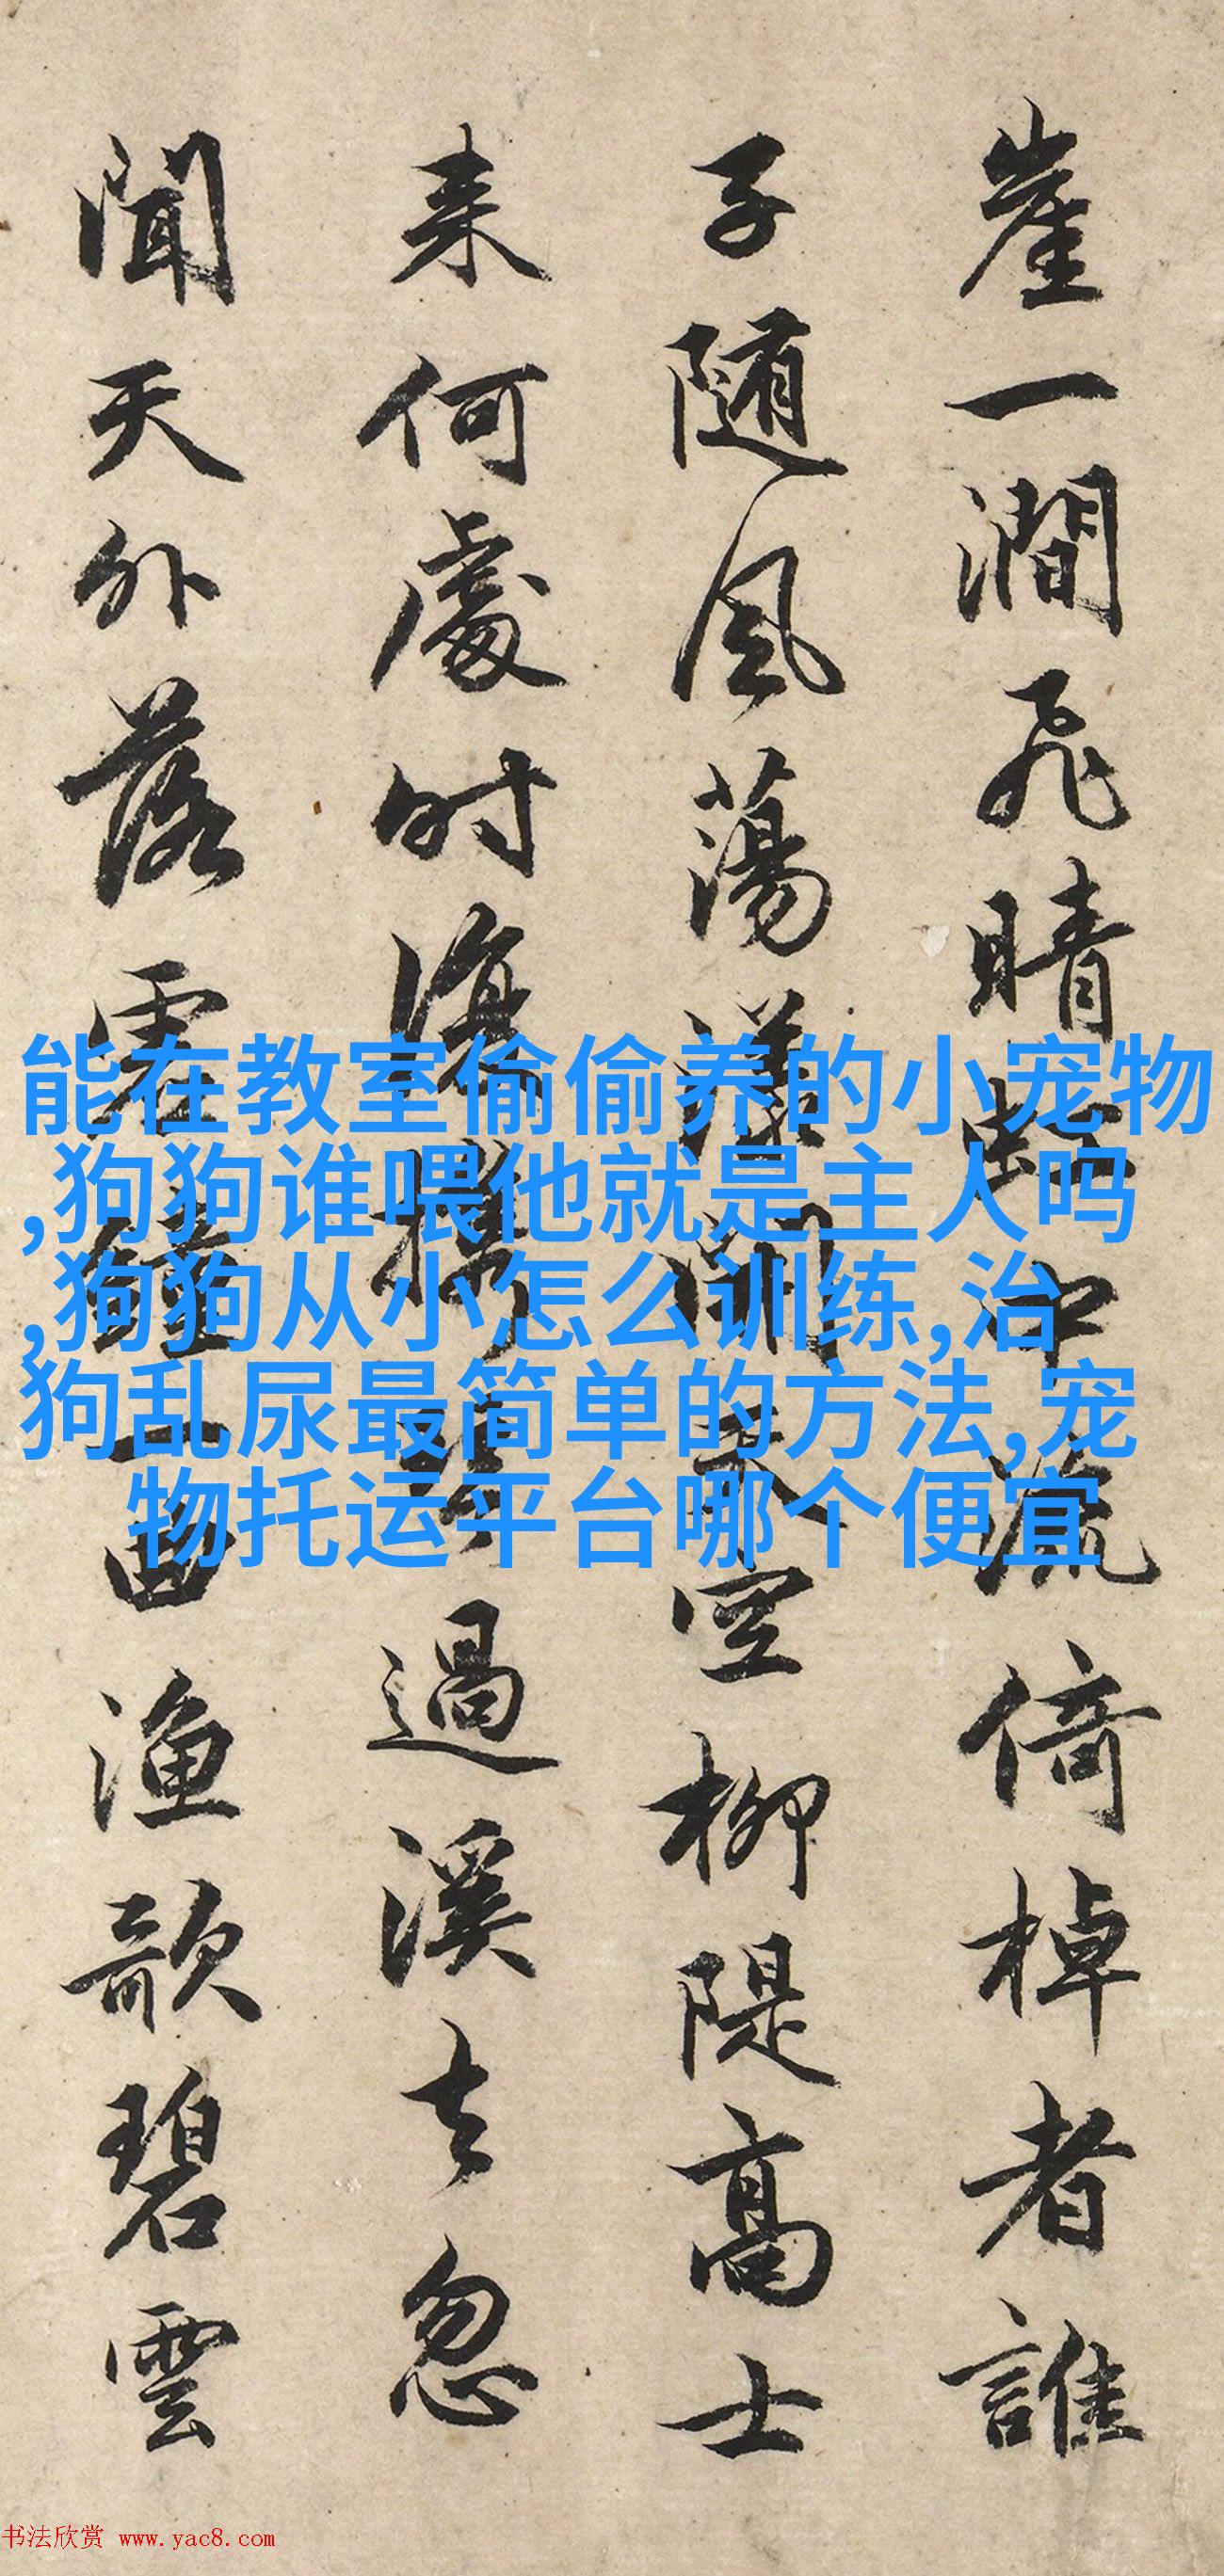 崖一澗飛晴虹中流倚棹者誰
子随風蕩漾開空柳隄高士
来何處时復携過溪去忽
聞天外落一曲漁歌碧雲
能在教室偷偷养的小宠物
,狗狗谁喂他就是主人吗
,狗狗从小怎么训练,治
狗乱尿最简单的方法,宠
物托运平台哪个便宜
书法欣赏 www.yac8.com